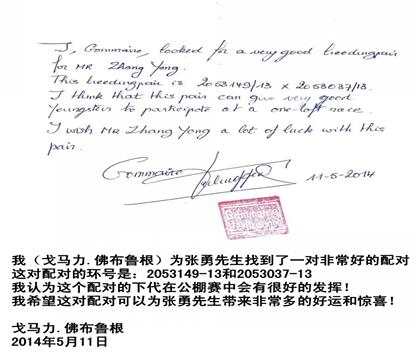 I, Gommaire, looked for a very good breedingpair
for MR Zhang Yong.
This breedingpair is 2053149/13 x 2053037/13.
I think that this pair can give very good
youngsters to participate at a one-loft race.
I wish MR Zhang Yong a lot of luck with this
pair.
Gommaire
11-5-2014
我（戈马力.佛布鲁根）为张勇先生找到了一对非常好的配对
这对配对的环号是：2053149-13和2053037-13
我认为这个配对的下代在公棚赛中会有很好的发挥！
我希望这对配对可以为张勇先生带来非常多的好运和惊喜！
戈马力.佛布鲁根
2014年5月11日